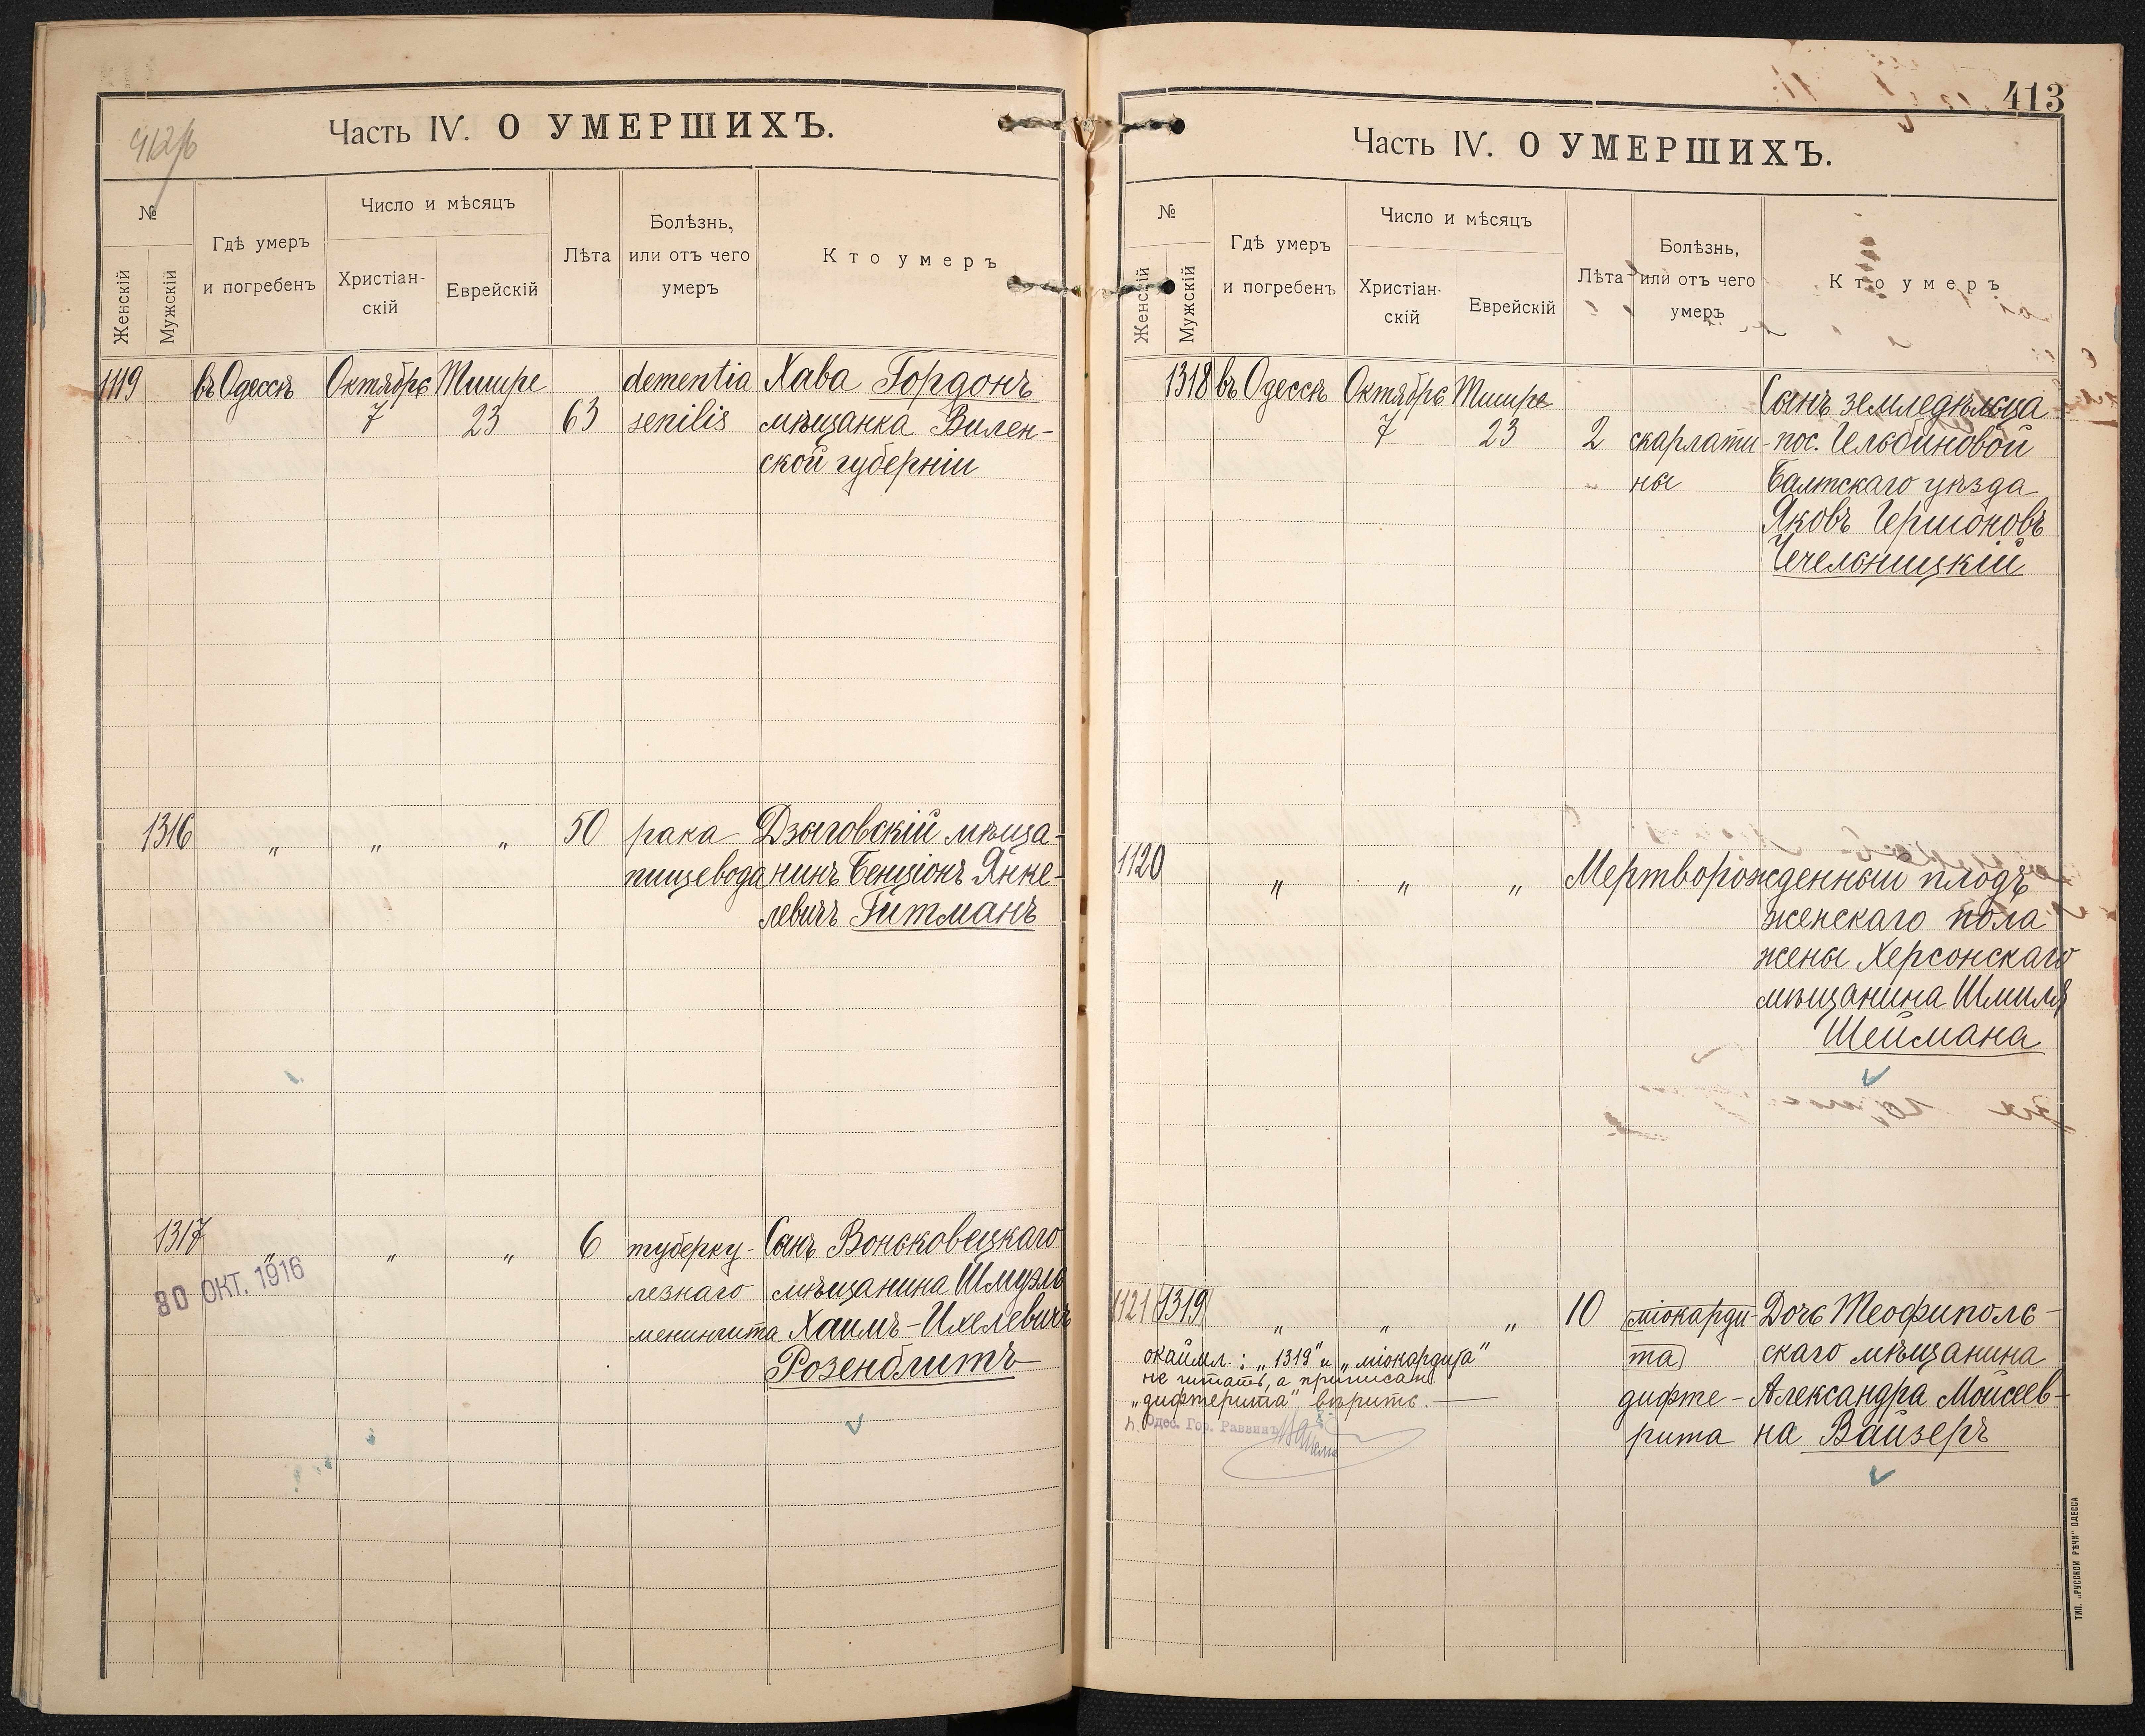 412/b
Часть IV. О УМЕРШИХЪ.
№
Женскій
Мужскій
Гдѣ умеръ
и погребенъ
Число и мѣсяцъ
Христіан-
скій
Еврейскій
Лѣта
Болѣзнь,
или отъ чего
умеръ
Кто умеръ
1119 въ Одессѣ Октябрь Тишре dementia Хава Гордонъ
7 23 63 senilis мѣщанка Вилен-
ской губерніи
1316 „ „ „ 50 рака Дзыговскій мѣща-
пищевода нинъ Бенціонъ Янке-
левичъ Гитманъ
1317 „ „ „ 6 туберку- Сынъ Воньковецкаго
30 ОКТ. 1916
лезнаго мѣщанина Шмуэль
менингита Хаимъ-Ихелевичъ
Розенблитъ
413
Часть IV. О УМЕРШИХЪ.
№
Женскій
Мужскій
Гдѣ умеръ
и погребенъ
Число и мѣсяцъ
Христіан-
скій
Еврейскій
Лѣта
Болѣзнь,
или отъ чего
умеръ
Кто умеръ
1318 въ Одессѣ Октябрь Тишре Сынъ земледѣльца
7 23 2 скарлати- пос. Гельбиновой
ны Балтскаго уѣзда
Яковъ Гершоновъ
Чечельницкій
1120 „ „ „ Мертворожденный плодъ
женскаго пола
жены Херсонскаго
мѣщанина Шмиля
Шеймана
1121 1319 „ „ „ 10 міокарди- Дочь Теофиполь-
та скаго мѣщанина
окаймл.: „1319" и „міокардита"
не читать, а приписан.
„дифтерита" вѣрить.
дифте- Александра Моисеев-
рита на Вайзеръ
Одес. Гор. Раввинъ
ТИП. „РУССКОЙ РѢЧИ" ОДЕССА